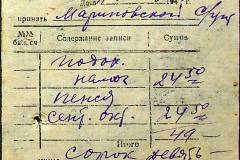 принять Мариновской
№№ бал. сч Содержание записи Сумма
подох.
налог 24 50
пенся
сент. окт. 24 50
Итого 49 -
сорок девять